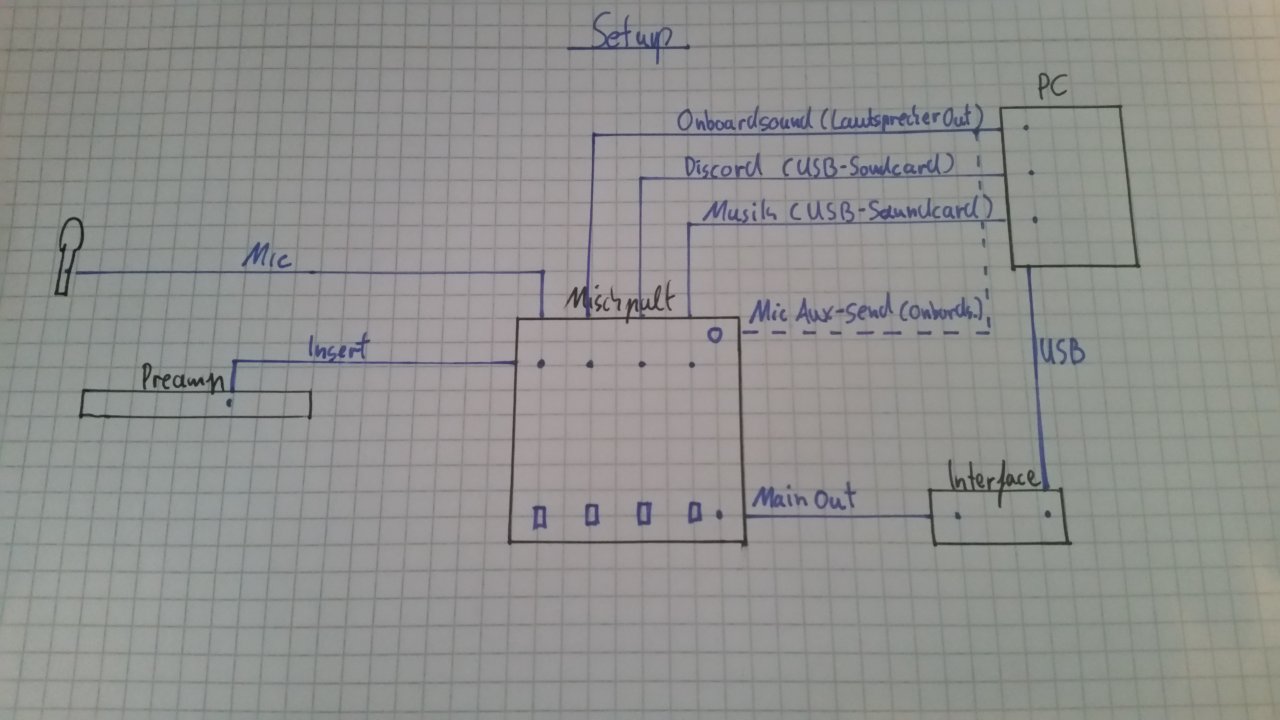 Setup
PC
Onboardsound (Lautsprecher Out)
Discord (USB-Soundcard)
Musik (USB-Soundcard)
Mic
Mischpult
Mic Aux-Send (onbords.)
Insert
USB
Preamp
Interface
Main Out